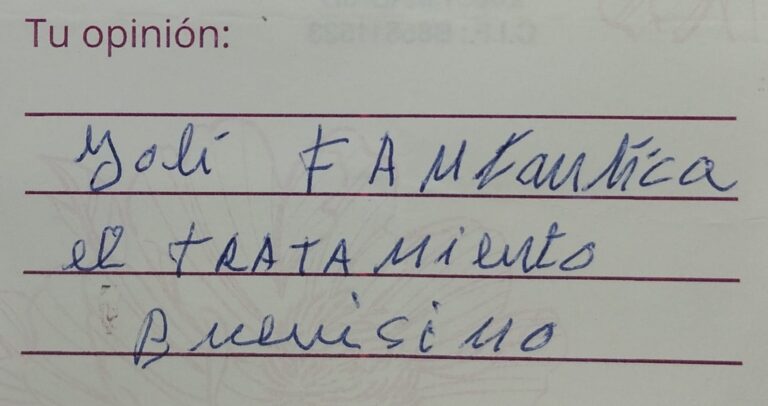 Tu opinión:
Yoli FANtantica
el tRATAMiento
Buenisimo